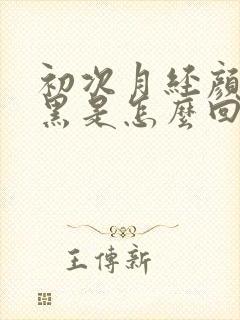 初次月经颜
黑是怎麼回
王傳新